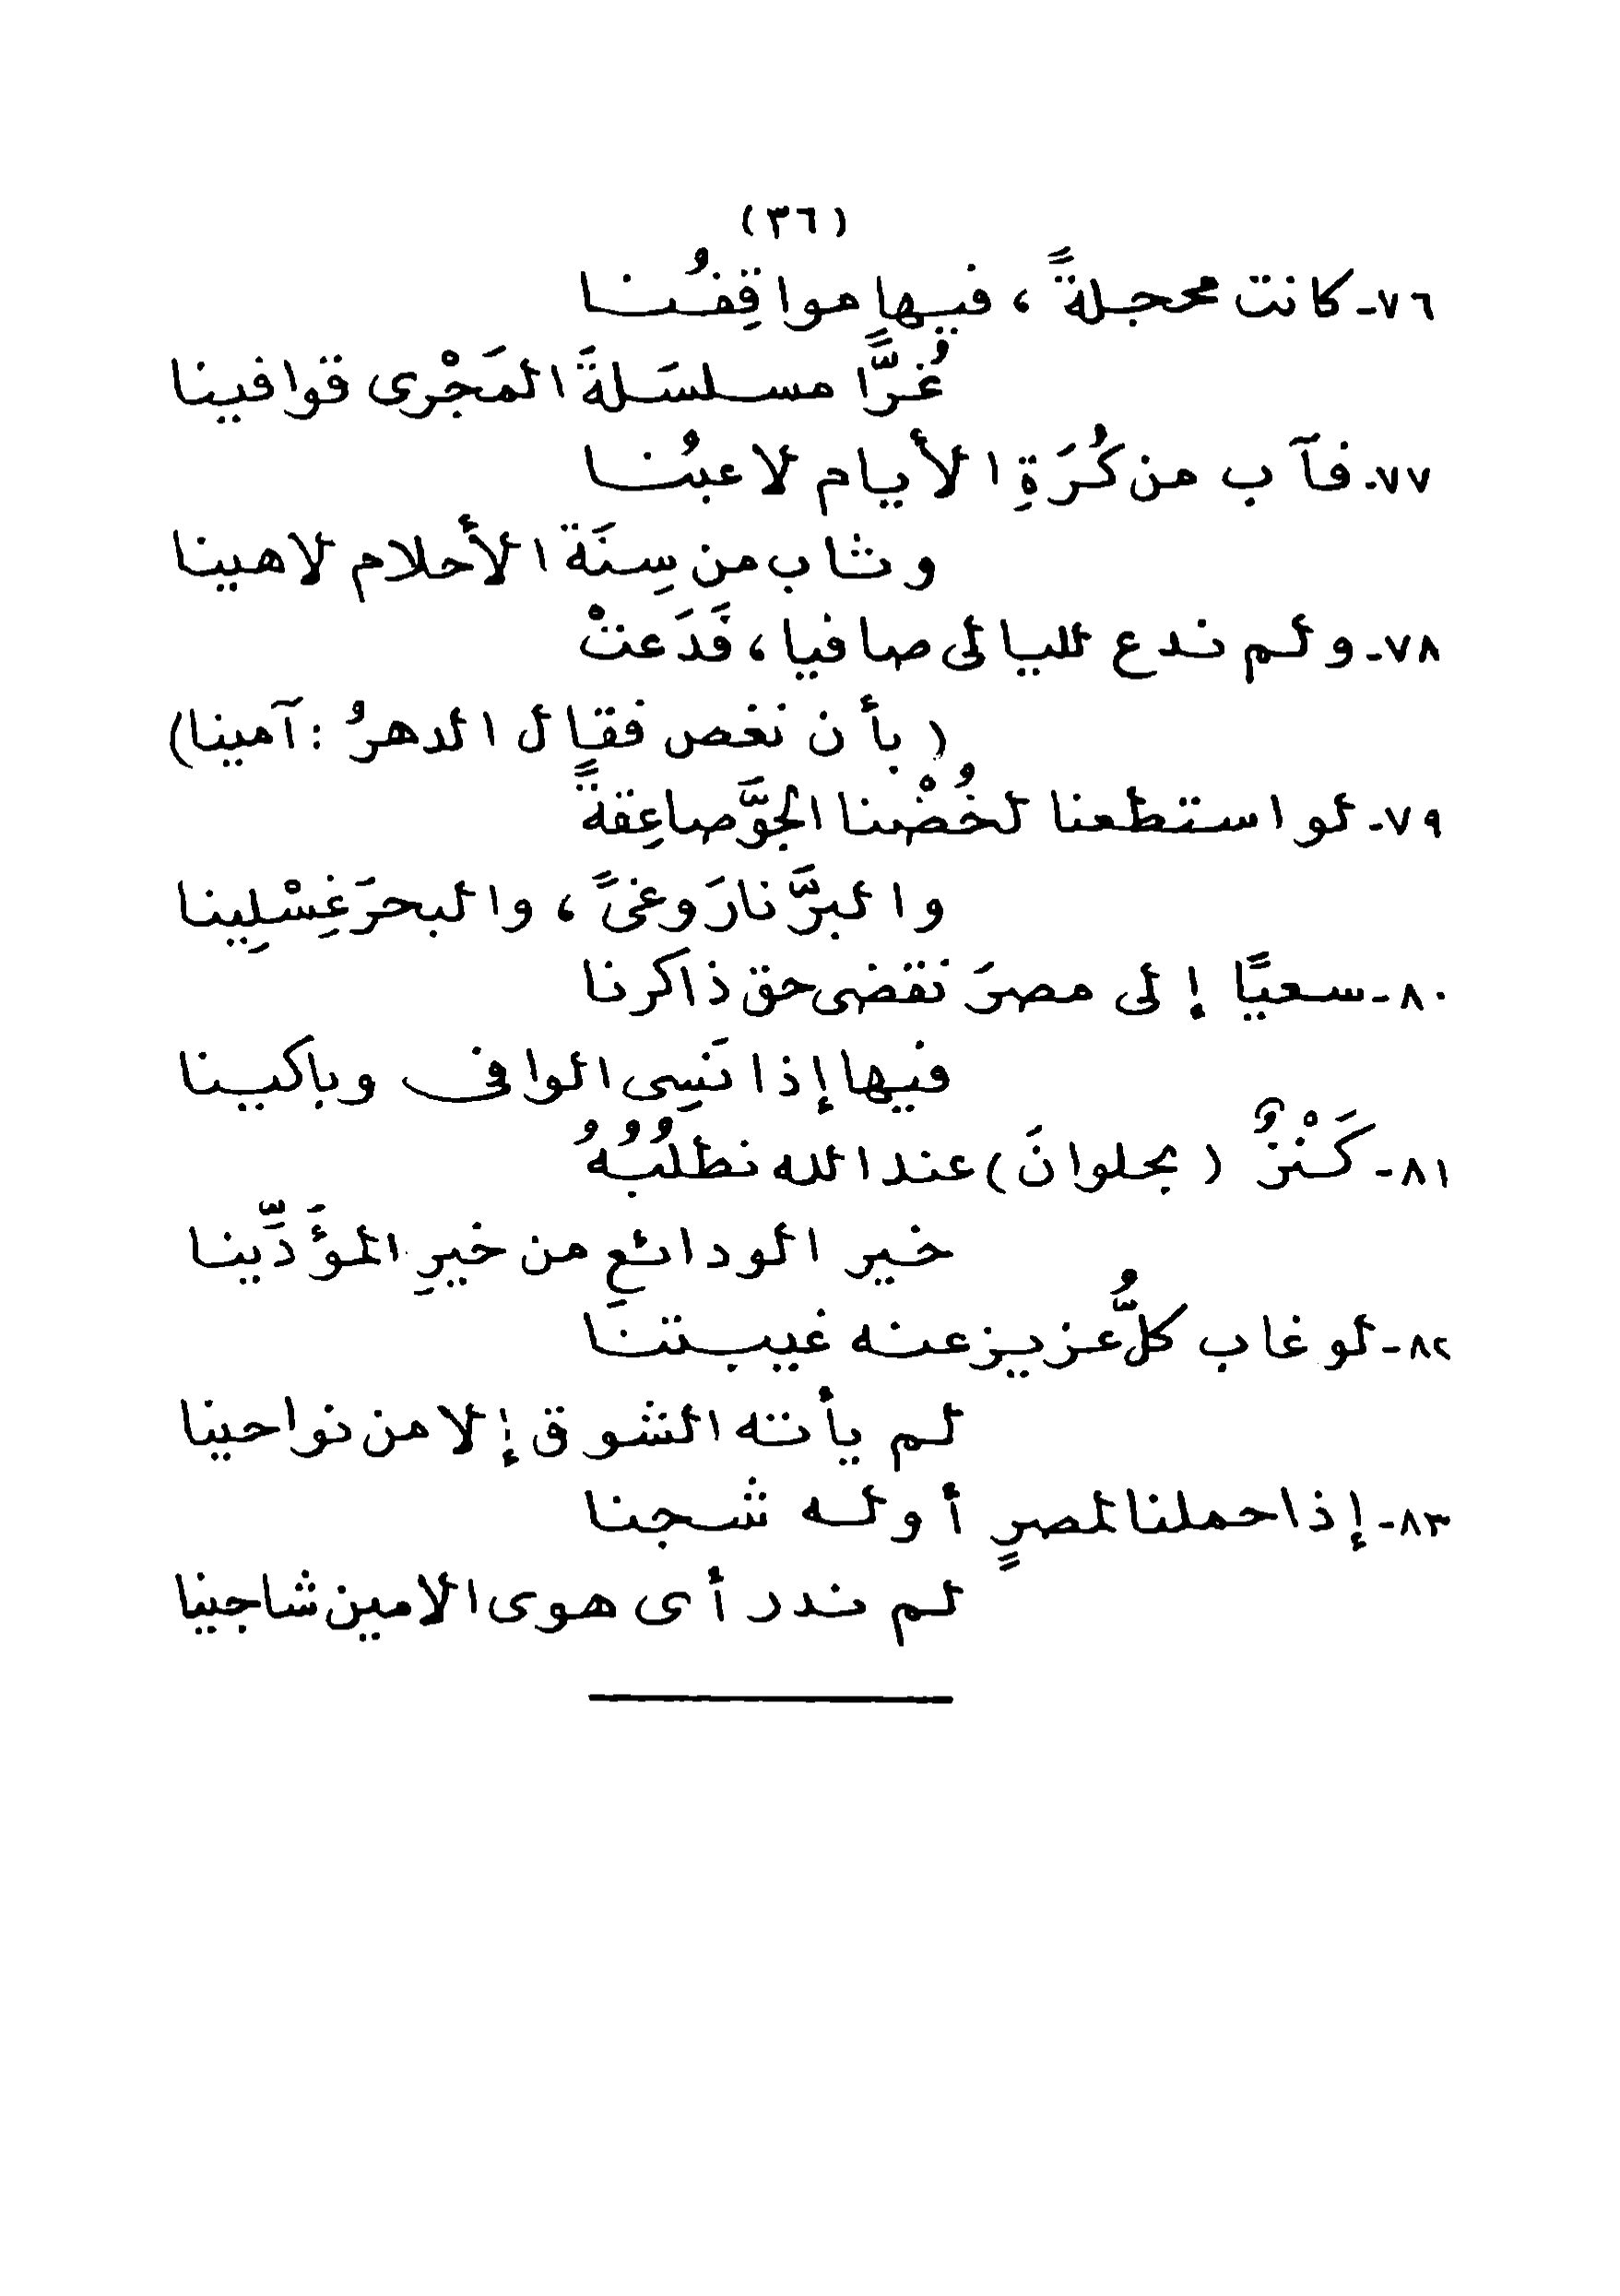 (٣٦)
٧٦- كانت محجلةً ، فيها مواقِفُنا
غُرًّا مسلسَلةَ المَجْرى قوافينا
٧٧- فآب من كُرَةِ الأيام لاعبُنا
وثاب من سِنَة الأحلام لاهينا
٧٨- ولم ندع لليالى صافيا، فَدَعتْ
(بأن نغص فقال الدهرُ : آمينا)
٧٩- لو استطعنا لخُضْنا الجوَّ صاعِقةً
والبرَّ نارَ وغىً ، والبحرَ غِسْلِينا
٨٠- سعيًا إلى مصرَ نقضى حق ذاكرنا
فيها إذا نَسِى الوافى وباكينا
٨١- كَنْزٌ (بحلوانَ) عند الله نطلُبُهُ
خير الودائعِ من خيرِ المؤَدِّينا
٨٢- لو غاب كلُّ عزيز عنه غيبتنَا
لم يأته الشوق إلا من نواحينا
٨٣- إذا حملنا لمصرٍ أو له شجنا
لم ندر أى هوى الامين شاجينا